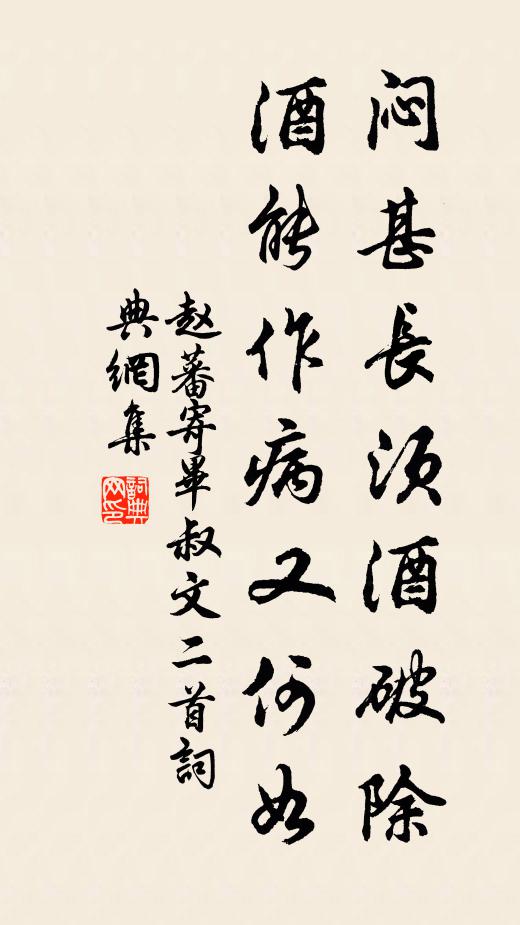 闷甚長须酒破除
酒能作病又何如
赵蕃寄畢叔文二首詞
典網集
詞典网印